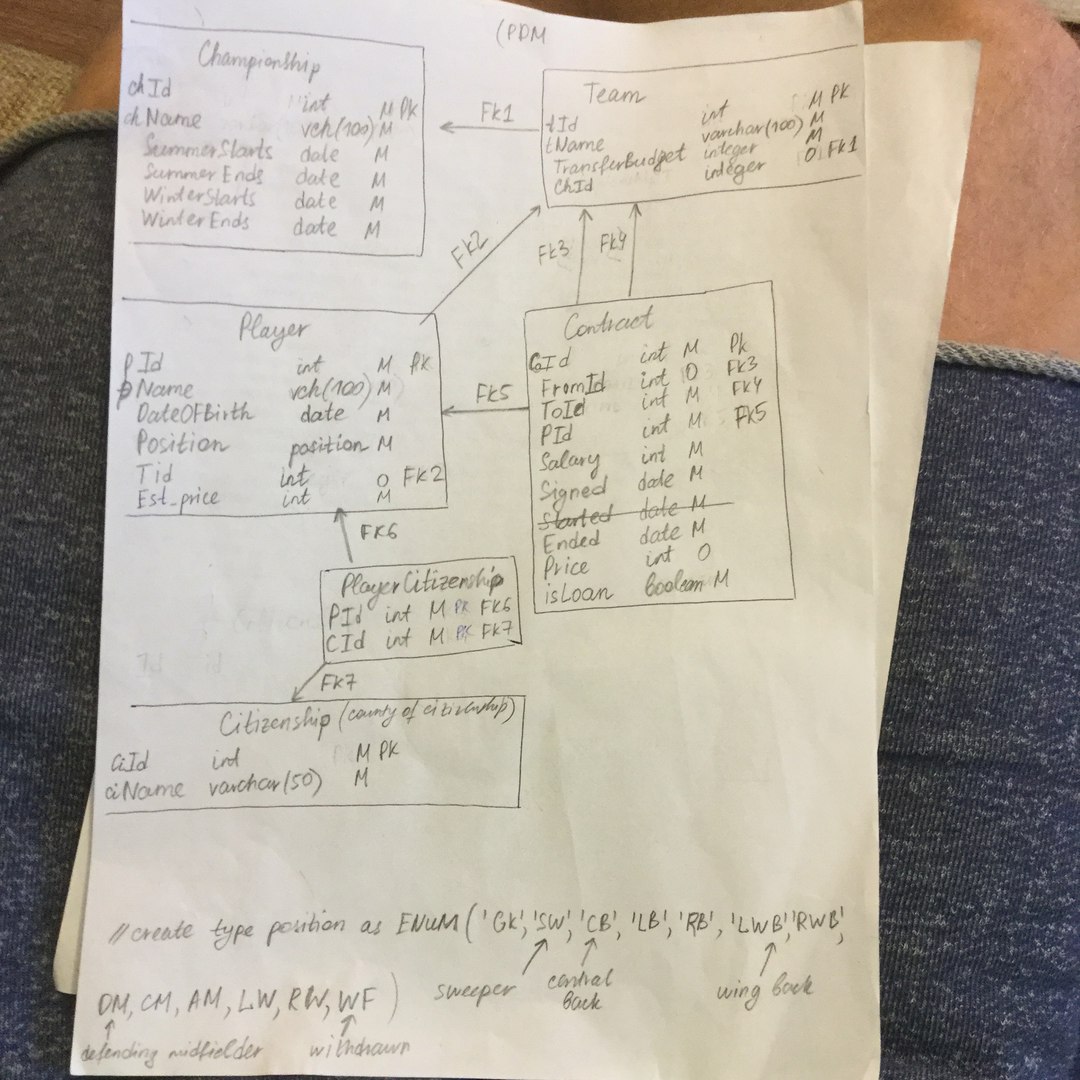 (PDM
Championship
chId int M PK
chName vch(100) M
SummerStarts date M
SummerEnds date M
WinterStarts date M
WinterEnds date M
FK1
Team
tId int M PK
tName varchar(100) M
TransferBudget integer M
ChId integer O FK1
FK2
FK3
FK4
Player
pId int M PK
pName vch(100) M
DateOfBirth date M
Position position M
Tid int O FK2
Est_price int M
FK5
Contract
CoId int M PK
FromId int O FK3
ToId int M FK4
PId int M FK5
Salary int M
Signed date M
Started date M
Ended date M
Price int O
isLoan Boolean M
FK6
PlayerCitizenship
PId int M PK FK6
CId int M PK FK7
FK7
Citizenship (county of citizenship)
ciId int M PK
ciName varchar(50) M
//create type position as ENUM('GK','SW','CB','LB','RB','LWB','RWB',
sweeper central back wing back
DM, CM, AM, LW, RW, WF)
defending midfielder withdrawn